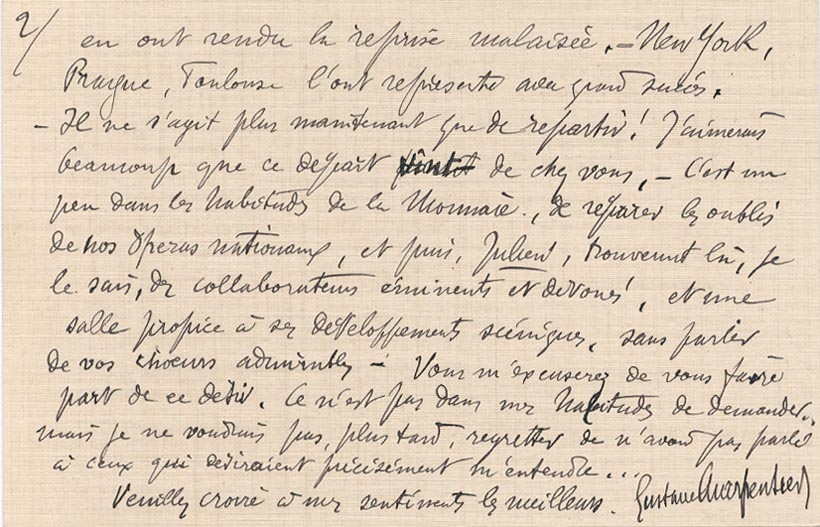 2/ en ont rendu la reprise malaisée. – New York,
Prague, Toulouse l'ont représenté avec grand succès.
– Il ne s'agit plus maintenant que de repartir! J'aimerais
beaucoup que ce départ vînt de chez vous, – C'est un
peu dans les habitudes de la Monnaie, de réparer les oublis
de nos Operas nationaux, et puis, Julien, trouverait là, je
le sais, des collaborateurs éminents et dévoués, et une
salle propice à ses développements scéniques, sans parler
de vos choeurs admirables – Vous m'excuserez de vous faire
part de ce désir. Ce n'est pas dans mes habitudes de demander.
mais je ne voudrais pas, plus tard, regretter de n'avoir pas parlé
à ceux qui désiraient précisément m'entendre...
Veuillez croire à mes sentiments les meilleurs. Gustave Charpentier